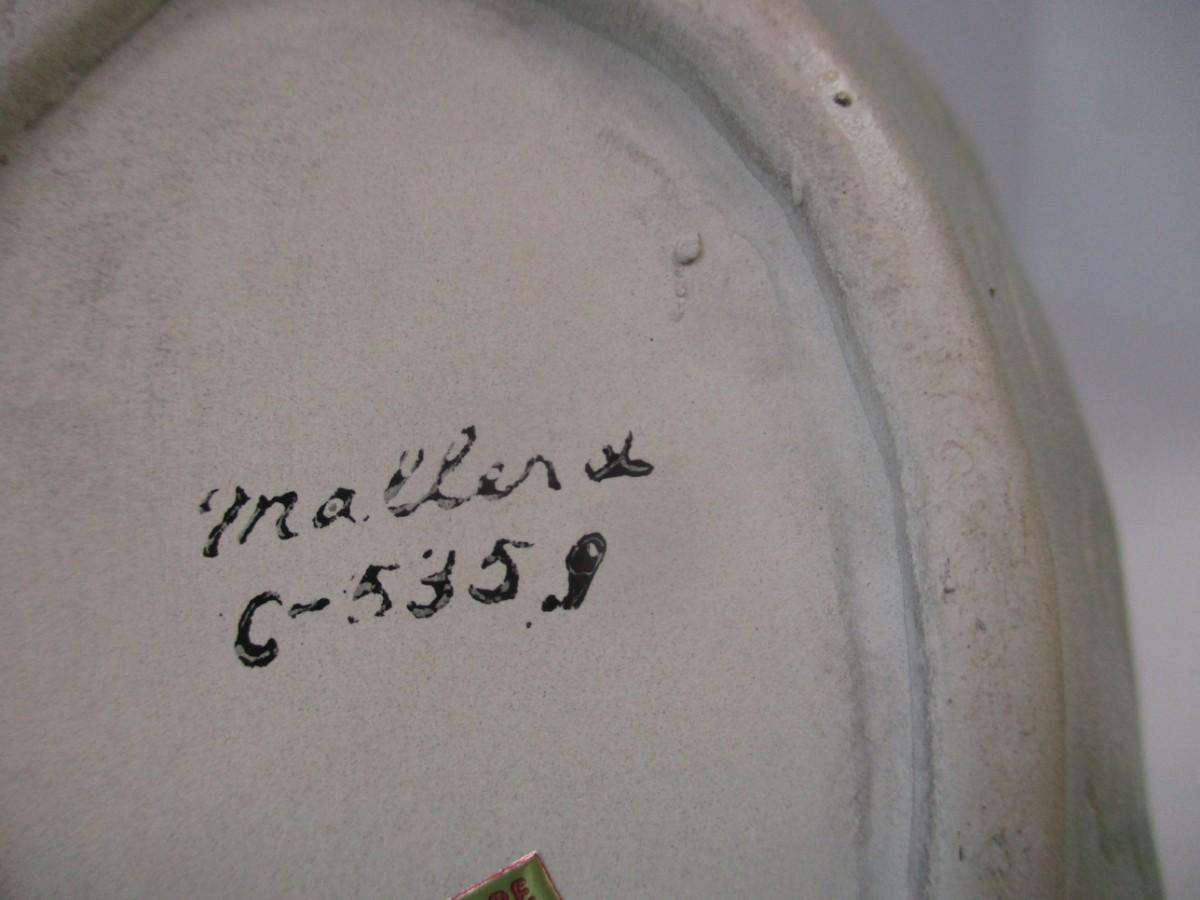 Mallerd
C-5359